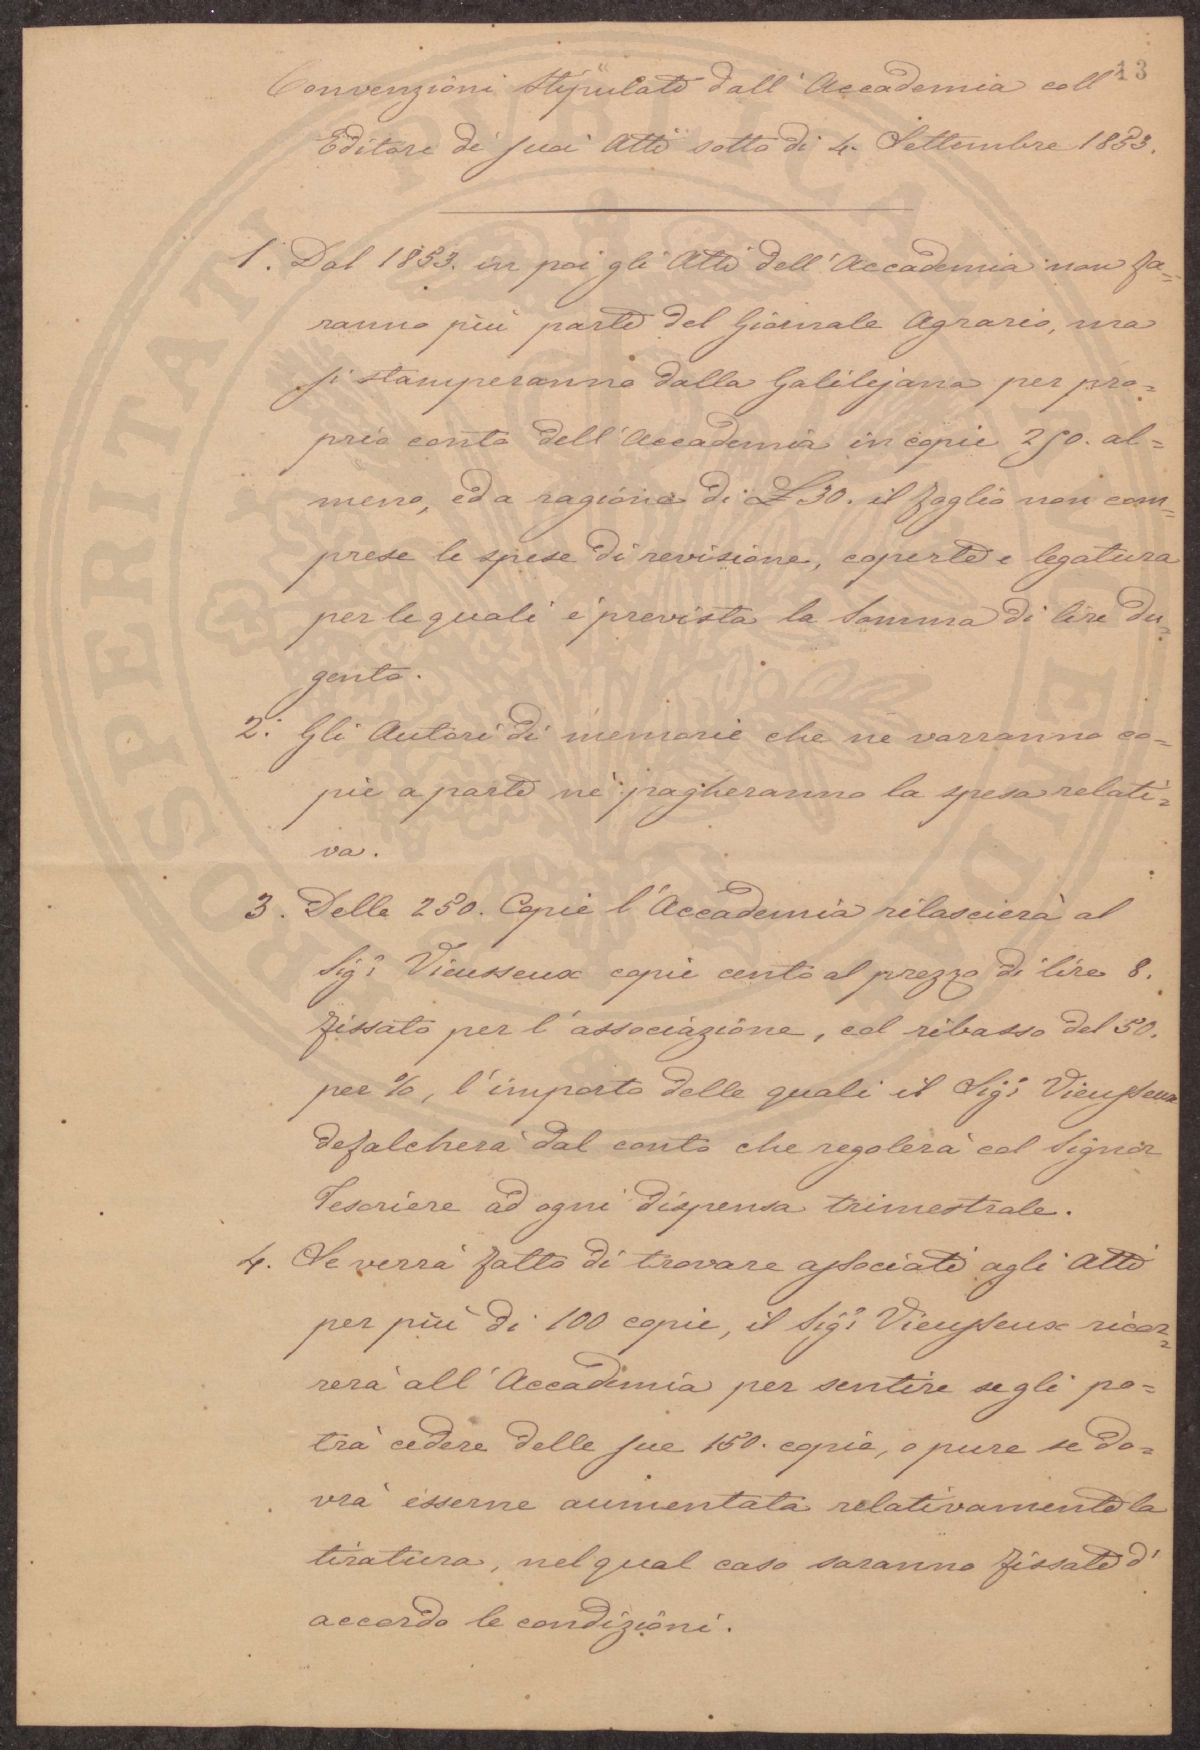 13
Convenzioni stipulate dall'Accademia coll'
Editore de' suoi Atti sotto di 4. Settembre 1853.
1. Dal 1853. in poi gli Atti dell'Accademia non fa=
ranno più parte del Giornale Agrario, ma
si stamperanno dalla Galilejana per pro=
prio conto dell'Accademia in copie 250. al=
meno, ed a ragione di £ 30. il foglio non com=
prese le spese di revisione, coperte e legatura
per le quali è prevista la Somma di lire du=
gento.
2. Gli Autori di memorie che ne vorranno co=
pie a parte ne pagheranno la spesa relati=
va.
3. Delle 250. Copie l'Accademia rilascierà al
Sigr. Vieusseux copie cento al prezzo di lire 8.
fissato per l'associazione, col ribasso del 50.
per %, l'importo delle quali il Sigr. Vieusseux
defalcherà dal conto che regolerà col Signor
Tesoriere ad ogni dispensa trimestrale.
4. Se verrà fatto di trovare associati agli Atti
per più di 100 copie, il Sigr. Vieusseux ricor=
rerà all'Accademia per sentire se gli po=
trà cedere delle sue 150. copie, o pure se do=
vrà esserne aumentata relativamente la
tiratura, nel qual caso saranno fissate d'
accordo le condizioni.
PROSPERITATI PUBLICAE AUGENDAE